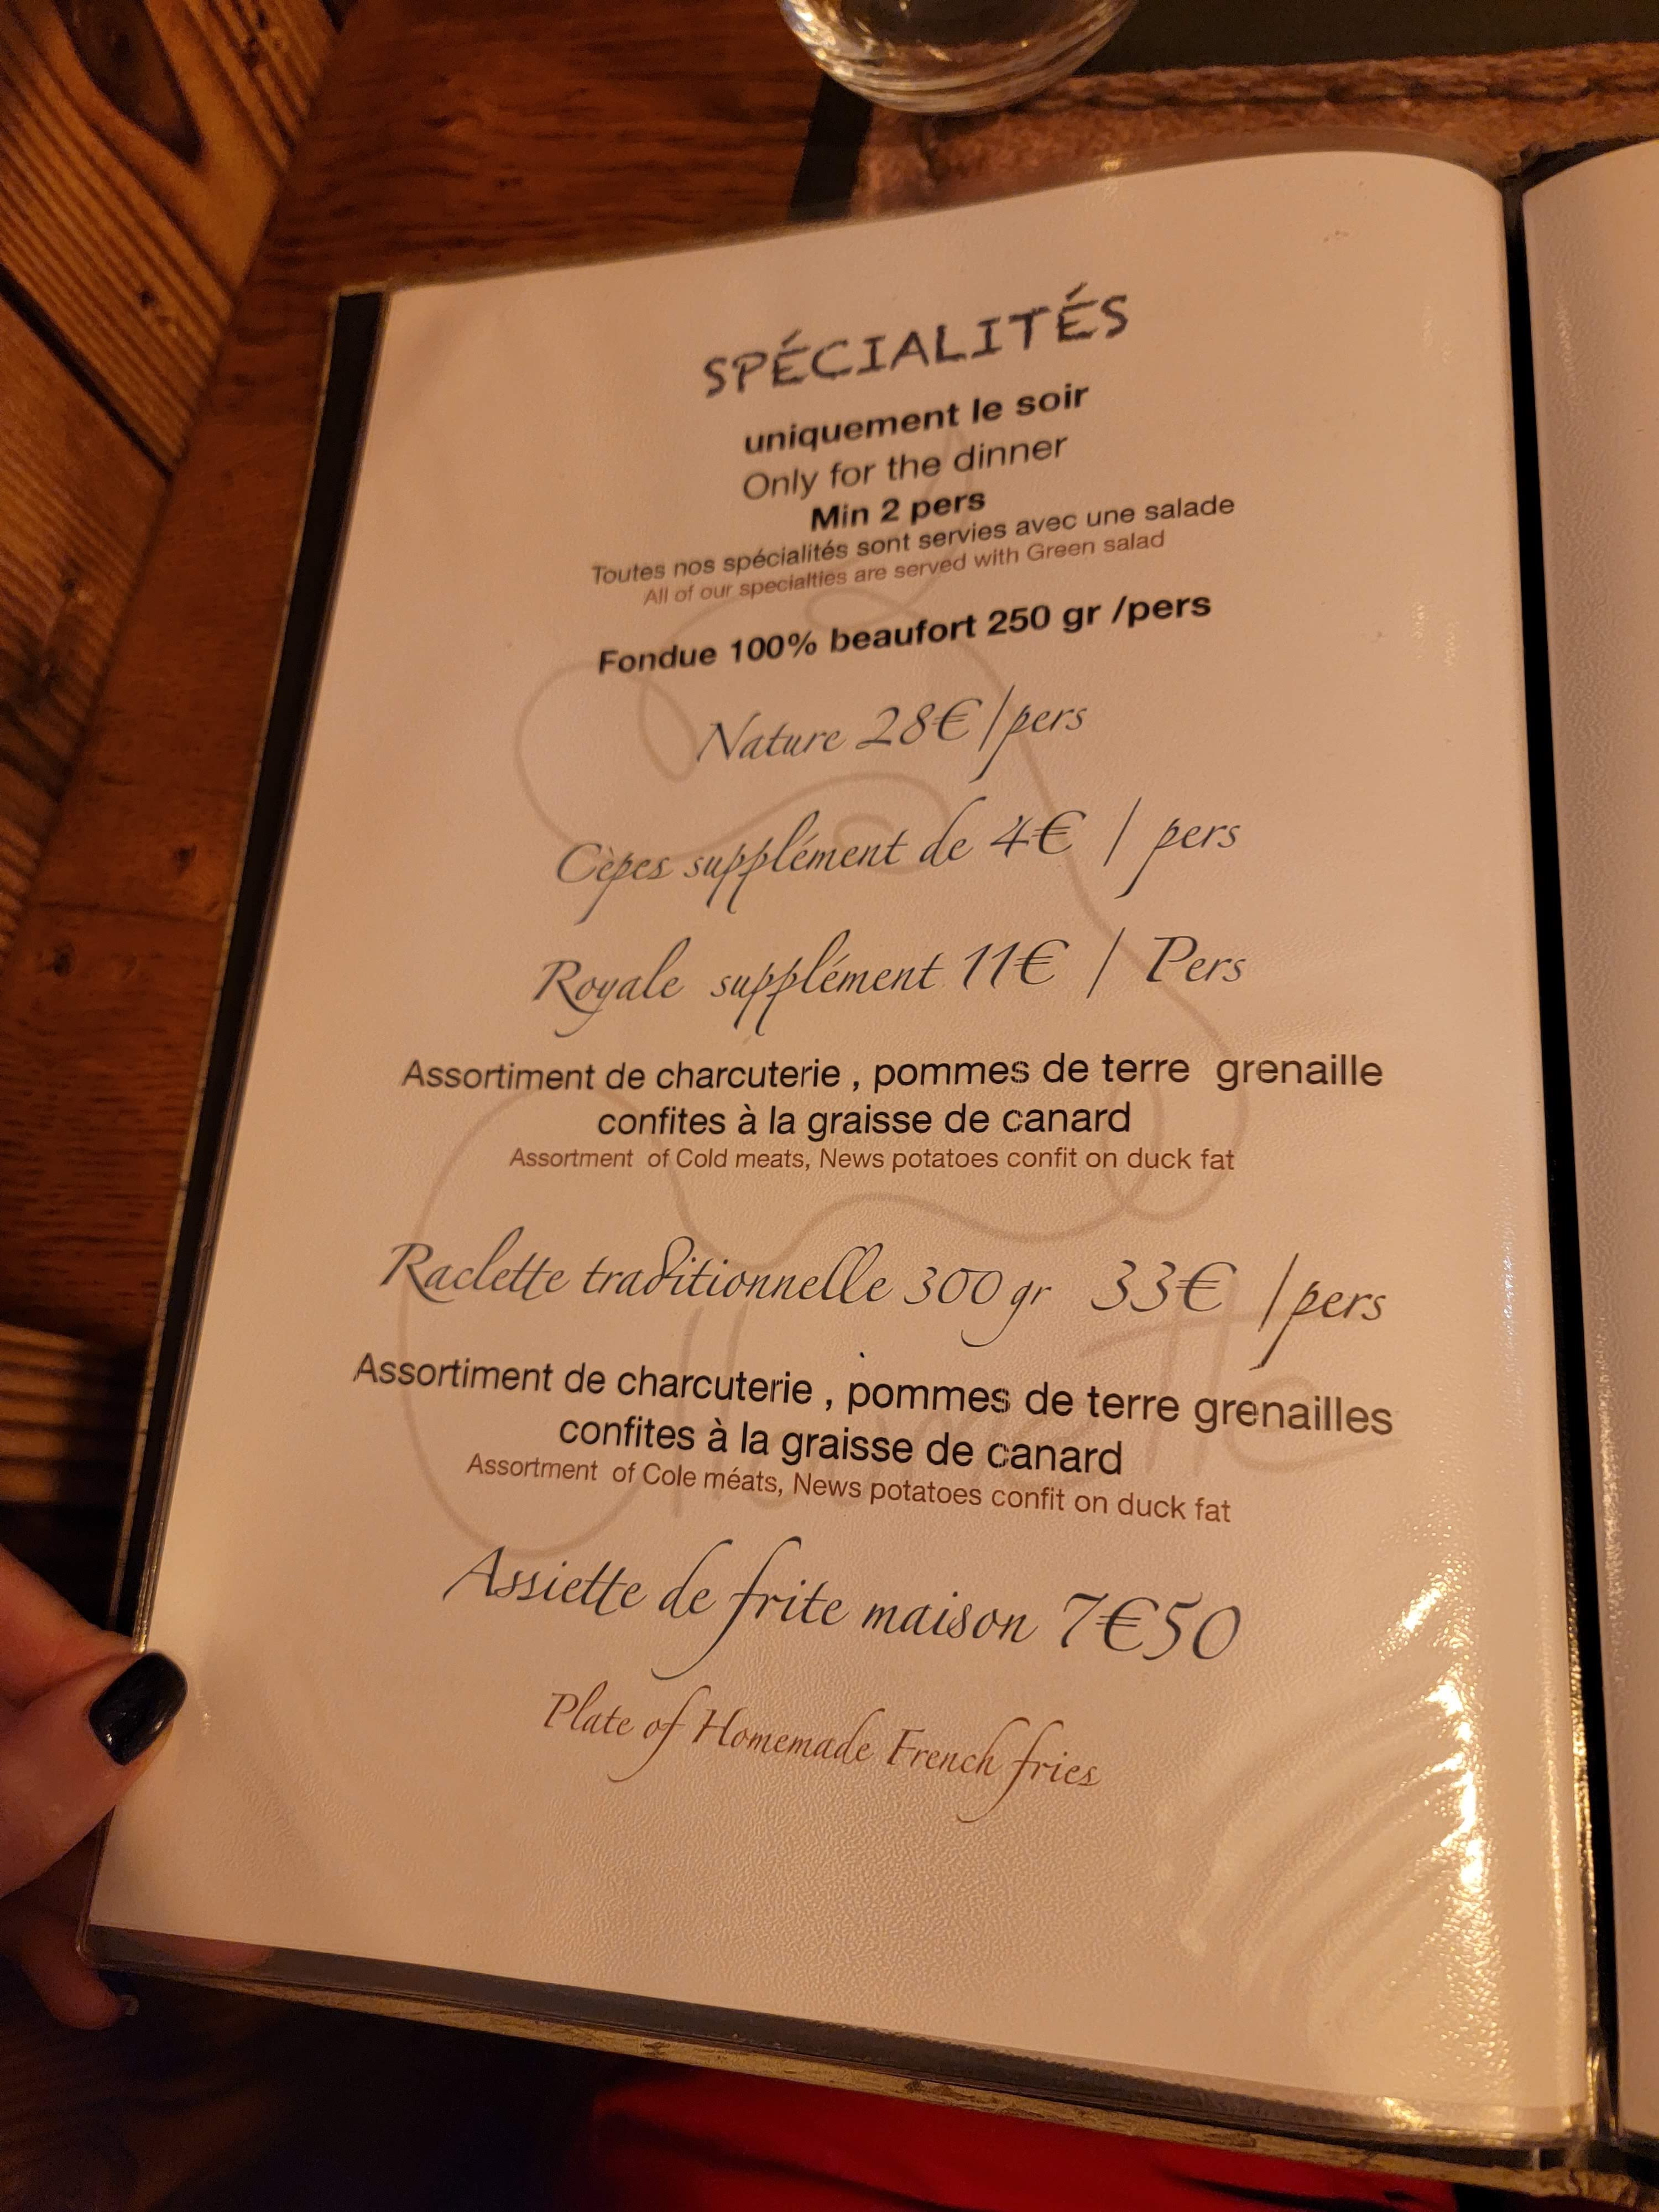 SPÉCIALITÉS
uniquement le soir
Only for the dinner
Min 2 pers
Toutes nos spécialités sont servies avec une salade
All of our specialties are served with Green salad
Fondue 100% beaufort 250 gr /pers
Nature 28€/pers
Cèpes supplément de 4€ / pers
Royale supplément 11€ / Pers
Assortiment de charcuterie , pommes de terre grenaille
confites à la graisse de canard
Assortment of Cold meats, News potatoes confit on duck fat
Raclette traditionnelle 300 gr 33€ /pers
Assortiment de charcuterie , pommes de terre grenailles
confites à la graisse de canard
Assortment of Cole méats, News potatoes confit on duck fat
Assiette de frite maison 7€50
Plate of Homemade French fries